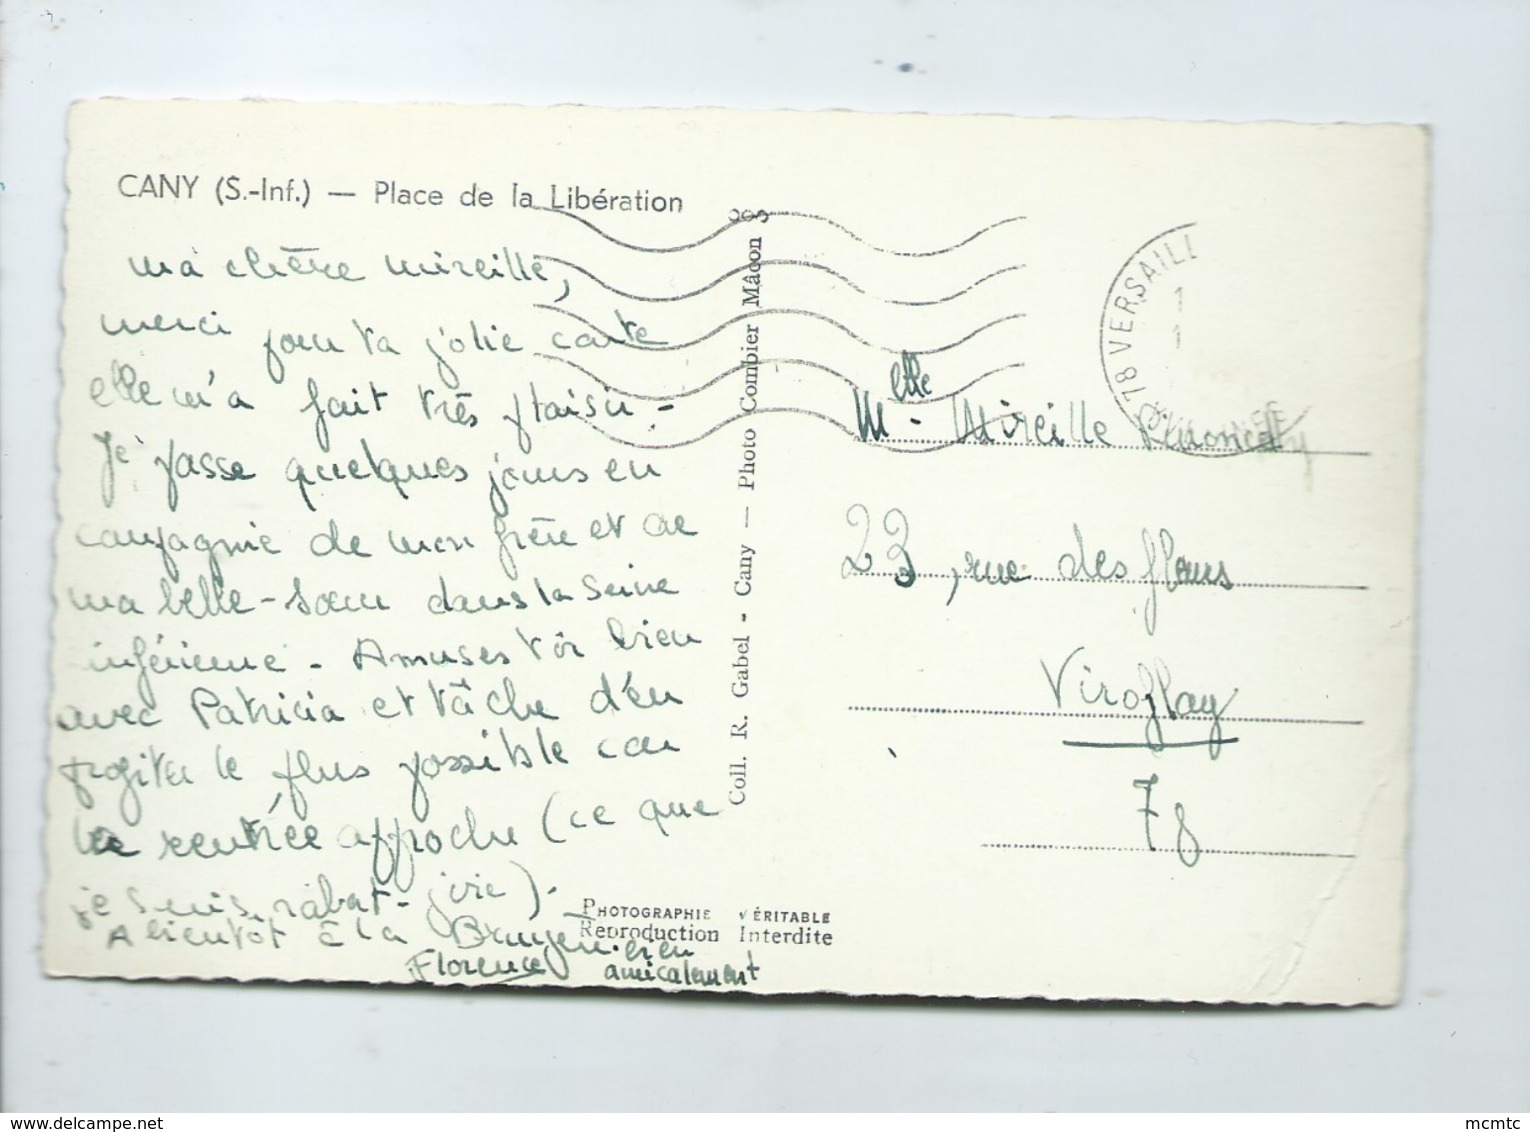 CANY (S.-Inf.) — Place de la Libération
ma chère mireille,
merci pour ta jolie carte
elle m'a fait très plaisir -
Je passe quelques jours en
compagnie de mon frère et de
ma belle-sœur dans la Seine
inférieure - Amuses toi bien
avec Patricia et tâche d'en
profiter le plus possible car
la rentrée approche (ce que
je suis rabat-joie).
A bientôt à la
bien
Florence amicalement
Coll. R. Gabel - Cany — Photo Combier Mâcon S
PHOTOGRAPHIE VÉRITABLE
Reproduction Interdite
78 VERSAILL
1
1
Melle - Mireille
23, rue des fleurs
Viroflay
78
delcampe.net
mcmtc